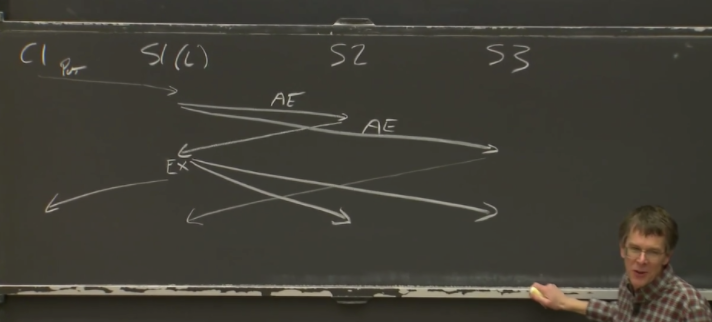 C1 S1(L) S2 S3
Put
AE
AE
Ex